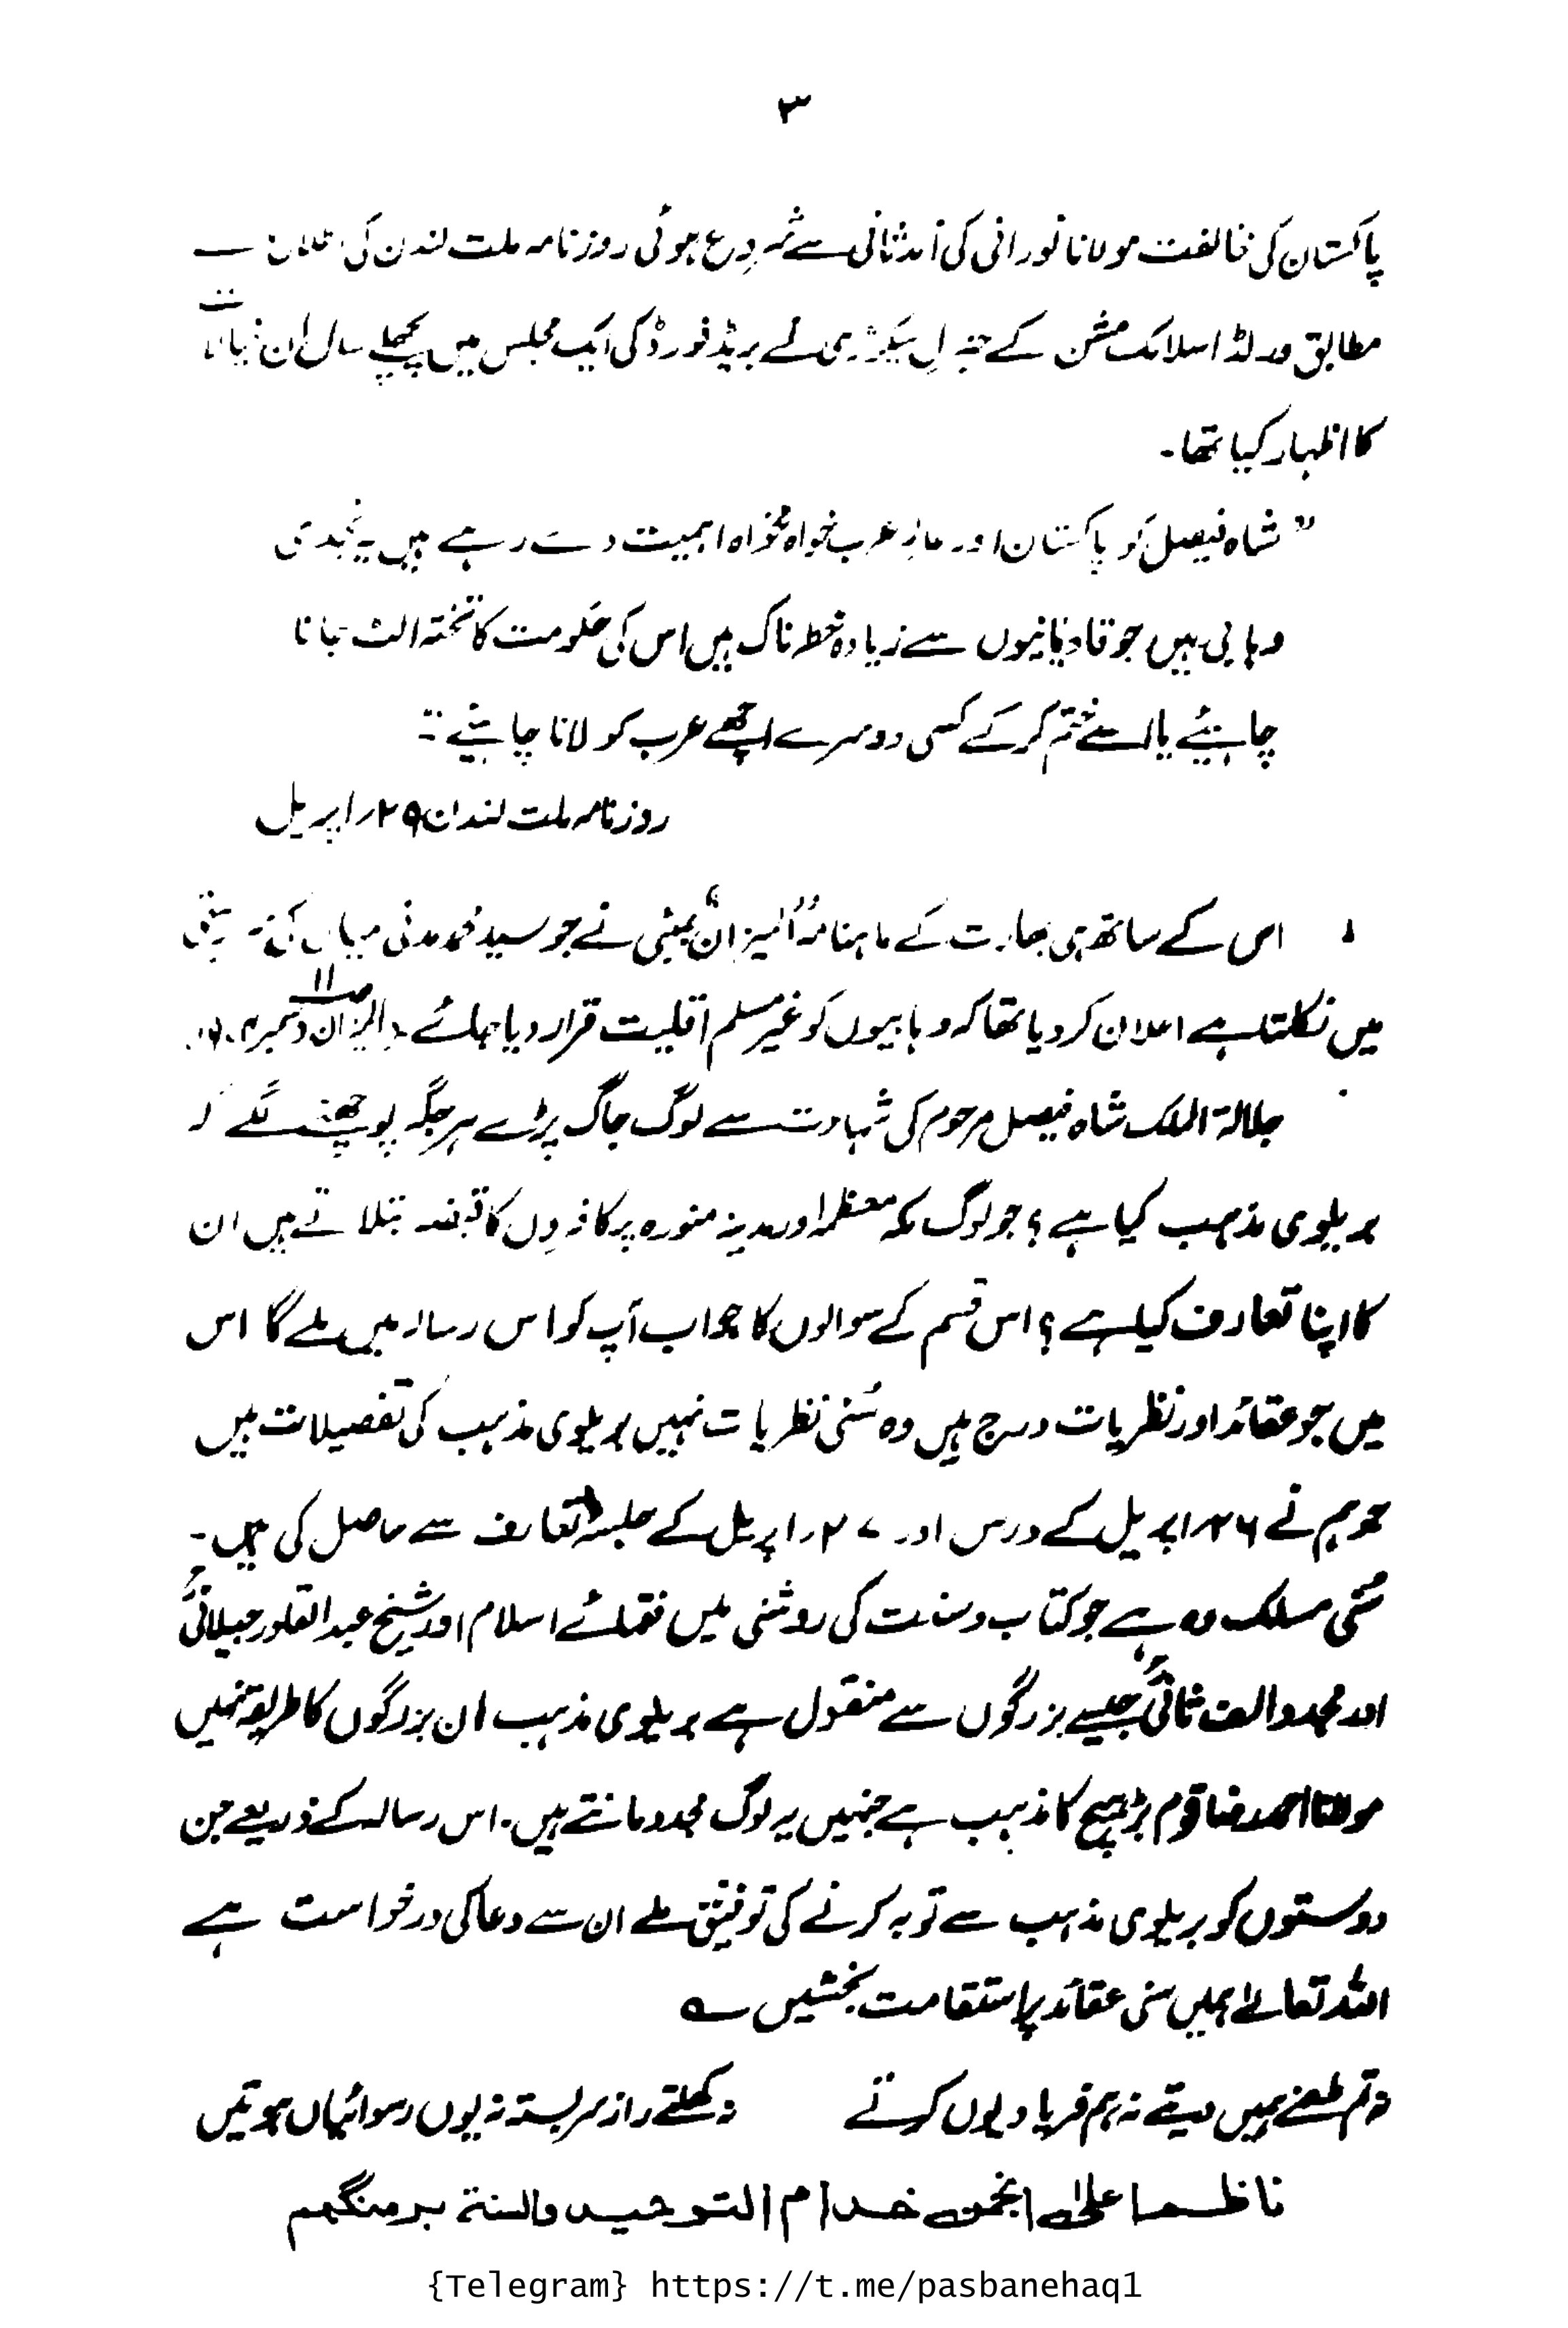 ۳
پاکستان کی مخالفت مولانا نورانی کی آمد ثانی سے شروع ہوئی روزنامہ ملت لندن کی اطلاع کے
مطابق ورلڈ اسلامک مشن کے جنرل سیکرٹری نے بریڈ فورڈ کی ایک مجلس میں پچھلے سال ان خیالات
کا اظہار کیا تھا۔
” شاہ فیصل کو پاکستان اور عرب خواہ مخواہ اہمیت دے رہے ہیں یہ نجدی
وہابی ہیں جو قادیانیوں سے زیادہ خطرناک ہیں اس کی حکومت کا تختہ الٹ جانا
چاہئیے یا اسے ختم کر کے کسی دوسرے اچھے عرب کو لانا چاہئیے “
روزنامہ ملت لندن ۲۹؍اپریل
اس کے ساتھ ہی بھارت کے ماہنامہ ”المیزان“ بمبئی نے جو سید محمد مدنی میاں کی سرپرستی
میں نکلتا ہے اعلان کر دیا تھا کہ وہابیوں کو غیر مسلم اقلیت قرار دیا جائے۔ المیزان دسمبر ص ۱۱
جلالۃ الملک شاہ فیصل مرحوم کی شہادت سے لوگ جاگ پڑے ہر جگہ پوچھنے لگے کہ
بریلوی مذہب کیا ہے ؟ جو لوگ مکہ معظمہ اور مدینہ منورہ پر کافروں کا قبضہ بتلاتے ہیں ان
کا اپنا تعارف کیا ہے ؟ اس قسم کے سوالوں کا جواب آپ کو اس رسالہ میں ملے گا اس
میں جو عقائد اور نظریات درج ہیں وہ سُنی نظریات نہیں بریلوی مذہب کی تفصیلات ہیں
جو ہم نے ۲۶؍اپریل کے درس اور ۲۷؍اپریل کے جلسہ تعارف سے حاصل کی ہیں۔
سُنّی مسلک وہ ہے جو کتاب و سنت کی روشنی میں فقہائے اسلام اور شیخ عبدالقادر جیلانیؒ
اور مجدد الف ثانیؒ جیسے بزرگوں سے منقول ہے بریلوی مذہب ان بزرگوں کا طریقہ نہیں
مولانا احمد رضا قوم بڑہیچ کا مذہب ہے جنہیں یہ لوگ مجدد مانتے ہیں۔ اس رسالہ کے ذریعے جن
دوستوں کو بریلوی مذہب سے توبہ کرنے کی توفیق ملے ان سے دعا کی درخواست ہے
اللہ تعالےٰ ہمیں سنی عقائد پر استقامت بخشیں ؎
نہ تم طعنے ہمیں دیتے نہ ہم فریاد یوں کرتے نہ کھلتے راز سربستہ نہ یوں رسوائیاں ہوتیں
ناظم اعلیٰ انجمن خدام التوحید والسنۃ برمنگھم
{Telegram} https://t.me/pasbanehaq1